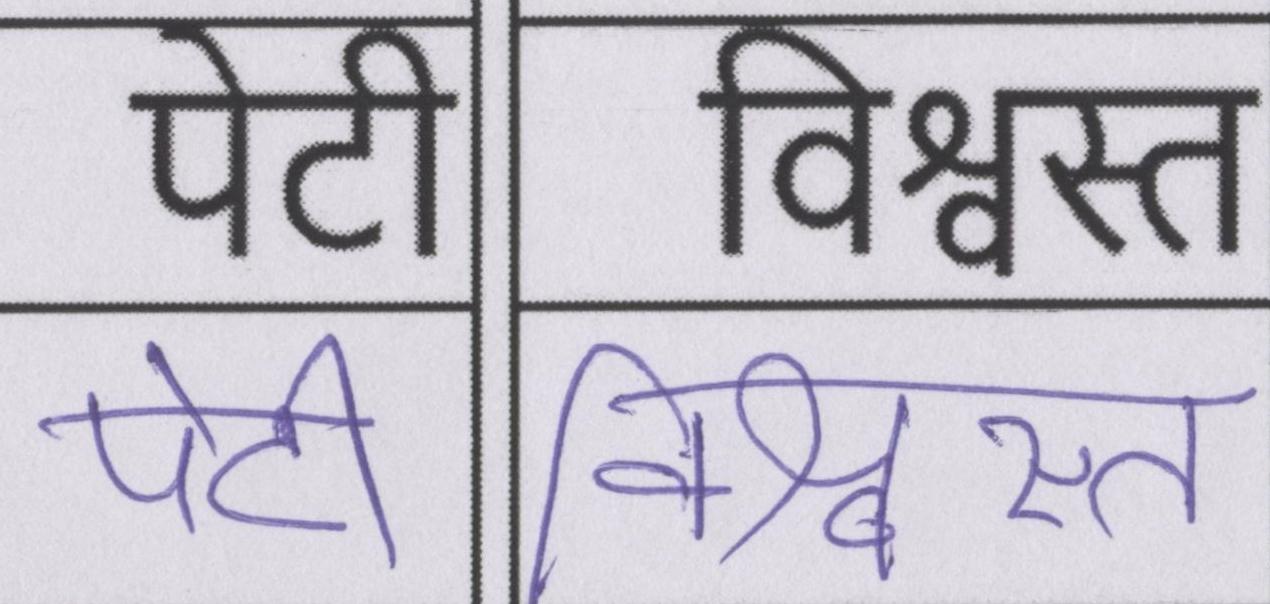 पेटी विश्वस्त
पेटी विश्वस्त